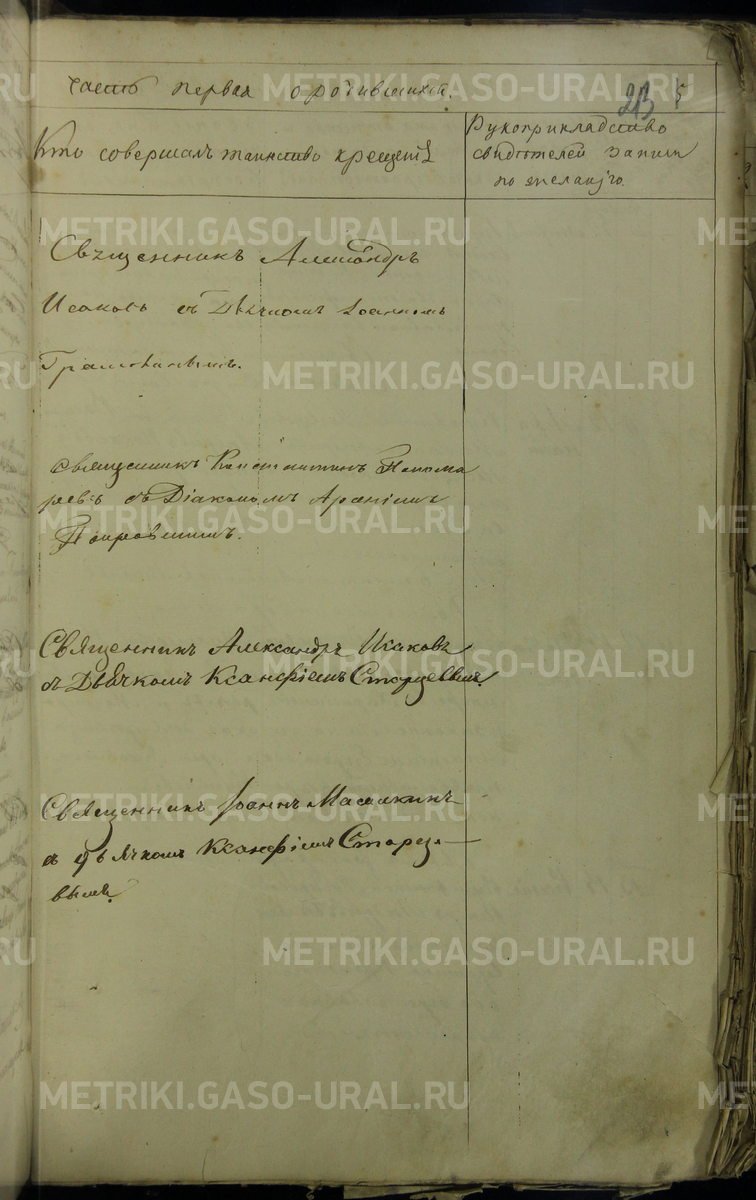 часть первая о родившихся.
213 5
Кто совершалъ таинство крещенія
Рукоприкладство
свидѣтелей записи
по желанію.
Священникъ Александръ
Исаковъ съ Дьячкомъ Іоанномъ
Священникъ Константинъ Понома
ревъ съ Діакономъ
Священникъ Александръ Исаковъ
съ Дьячкомъ Ксанфіемъ Старцевымъ.
Священникъ Іоаннъ
съ дьячкомъ Ксанфіемъ Старце-
вымъ.
METRIKI.GASO-URAL.RU